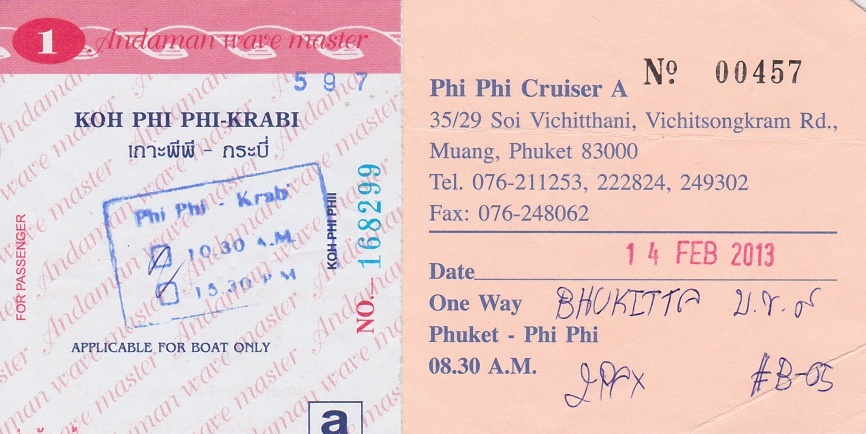 1 Andaman wave master
597
KOH PHI PHI-KRABI
เกาะพีพี - กระบี่
Phi Phi - Krabi
10.30 A.M.
15.30 P M
FOR PASSENGER
KOH PHI PHI
NO. 168299
APPLICABLE FOR BOAT ONLY
a
Phi Phi Cruiser A Nº 00457
35/29 Soi Vichitthani, Vichitsongkram Rd.,
Muang, Phuket 83000
Tel. 076-211253, 222824, 249302
Fax: 076-248062
14 FEB 2013
Date
One Way BHUKITTA
Phuket - Phi Phi
08.30 A.M. #B-05